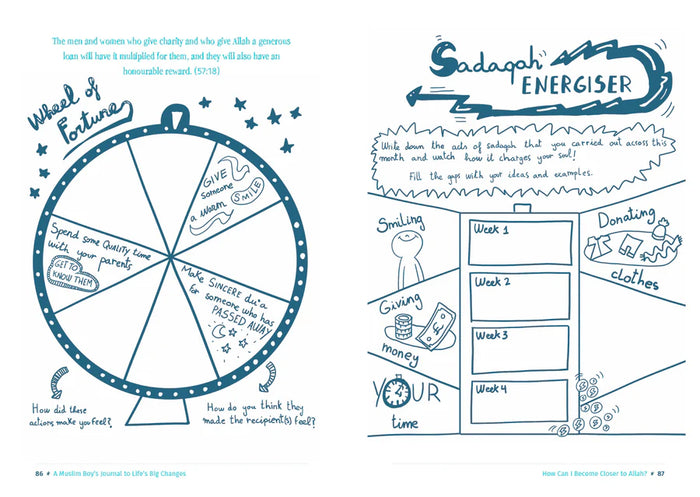 The men and women who give charity and who give Allah a generous
loan will have it multiplied for them, and they will also have an
honourable reward. (57:18)
Wheel of
Fortune
GIVE
someone
a warm SMILE
Spend some QUALITY time
with your parents
GET TO
KNOW THEM
Make SINCERE du'a
for someone who has
PASSED AWAY
How did these
actions make you feel?
How do you think they
made the recipient(s) feel?
86 A Muslim Boy's Journal to Life's Big Changes
Sadaqah
ENERGISER
Write down the acts of sadaqah that you carried out across this
month and watch how it charges your soul!
Fill the gaps with your ideas and examples.
Smiling
Giving
money
YOUR
time
Week 1
Week 2
Week 3
Week 4
Donating
clothes
How Can I Become Closer to Allah? 87